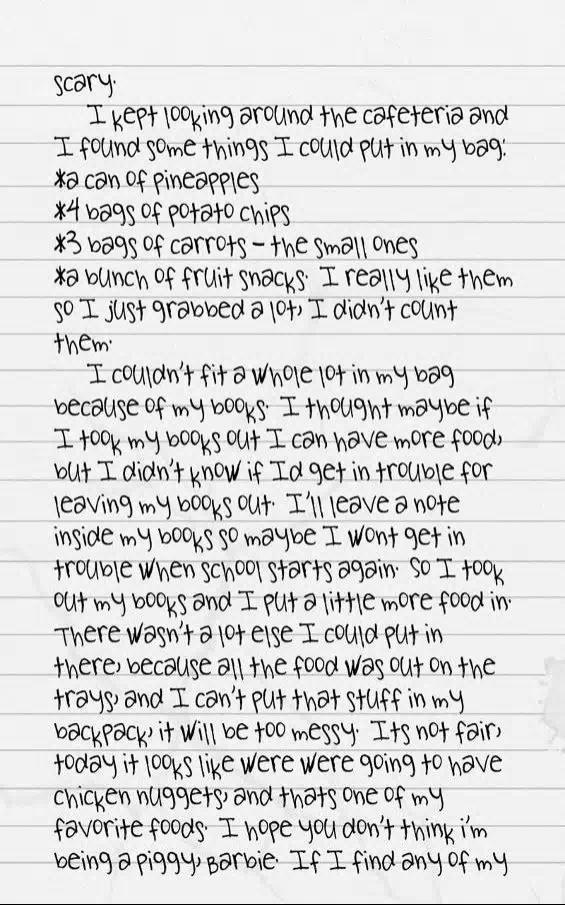 scary.
I kept looking around the cafeteria and
I found some things I could put in my bag:
*a can of pineapples
*4 bags of potato chips
*3 bags of carrots - the small ones
*a bunch of fruit snacks. I really like them
so I just grabbed a lot, I didn't count
them.
I couldn't fit a whole lot in my bag
because of my books. I thought maybe if
I took my books out I can have more food,
but I didn't know if Id get in trouble for
leaving my books out. I'll leave a note
inside my books so maybe I wont get in
trouble when school starts again. So I took
out my books and I put a little more food in.
There wasn't a lot else I could put in
there, because all the food was out on the
trays, and I can't put that stuff in my
backpack, it will be too messy. Its not fair,
today it looks like were were going to have
chicken nuggets, and thats one of my
favorite foods. I hope you don't think i'm
being a piggy, Barbie. If I find any of my